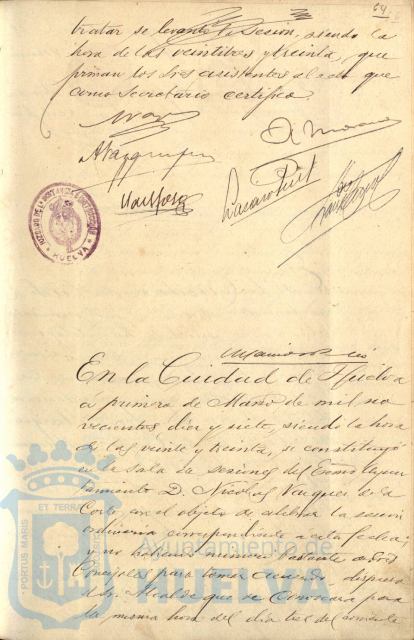 64
tratar se levantó la Sesión, siendo la
hora de las veintitres y treinta, que
firman los Sres asistentes al acto que
como Secretario certifico.
A. Moreno
REGISTRO DE LA
HUELVA
En la Ciudad de Huelva
a primero de Marzo de mil no
vecientos diez y siete, siendo la hora
de las veinte y treinta, se constituyó
en la Sala de sesiones del Excmo Ayun
tamiento D. Nicolas Vazquez de la
Corte, con el objeto de celebrar la sesión
ordinaria correspondiente a esta fecha;
y no bastante de Sres
Concejales para tomar acuerdo, dispuso
el Sr. Alcalde que se convocara para
la misma hora del dia tres del corriente
PORTUS MARIS ET TERRAE
Ayuntamiento de
HUELVA